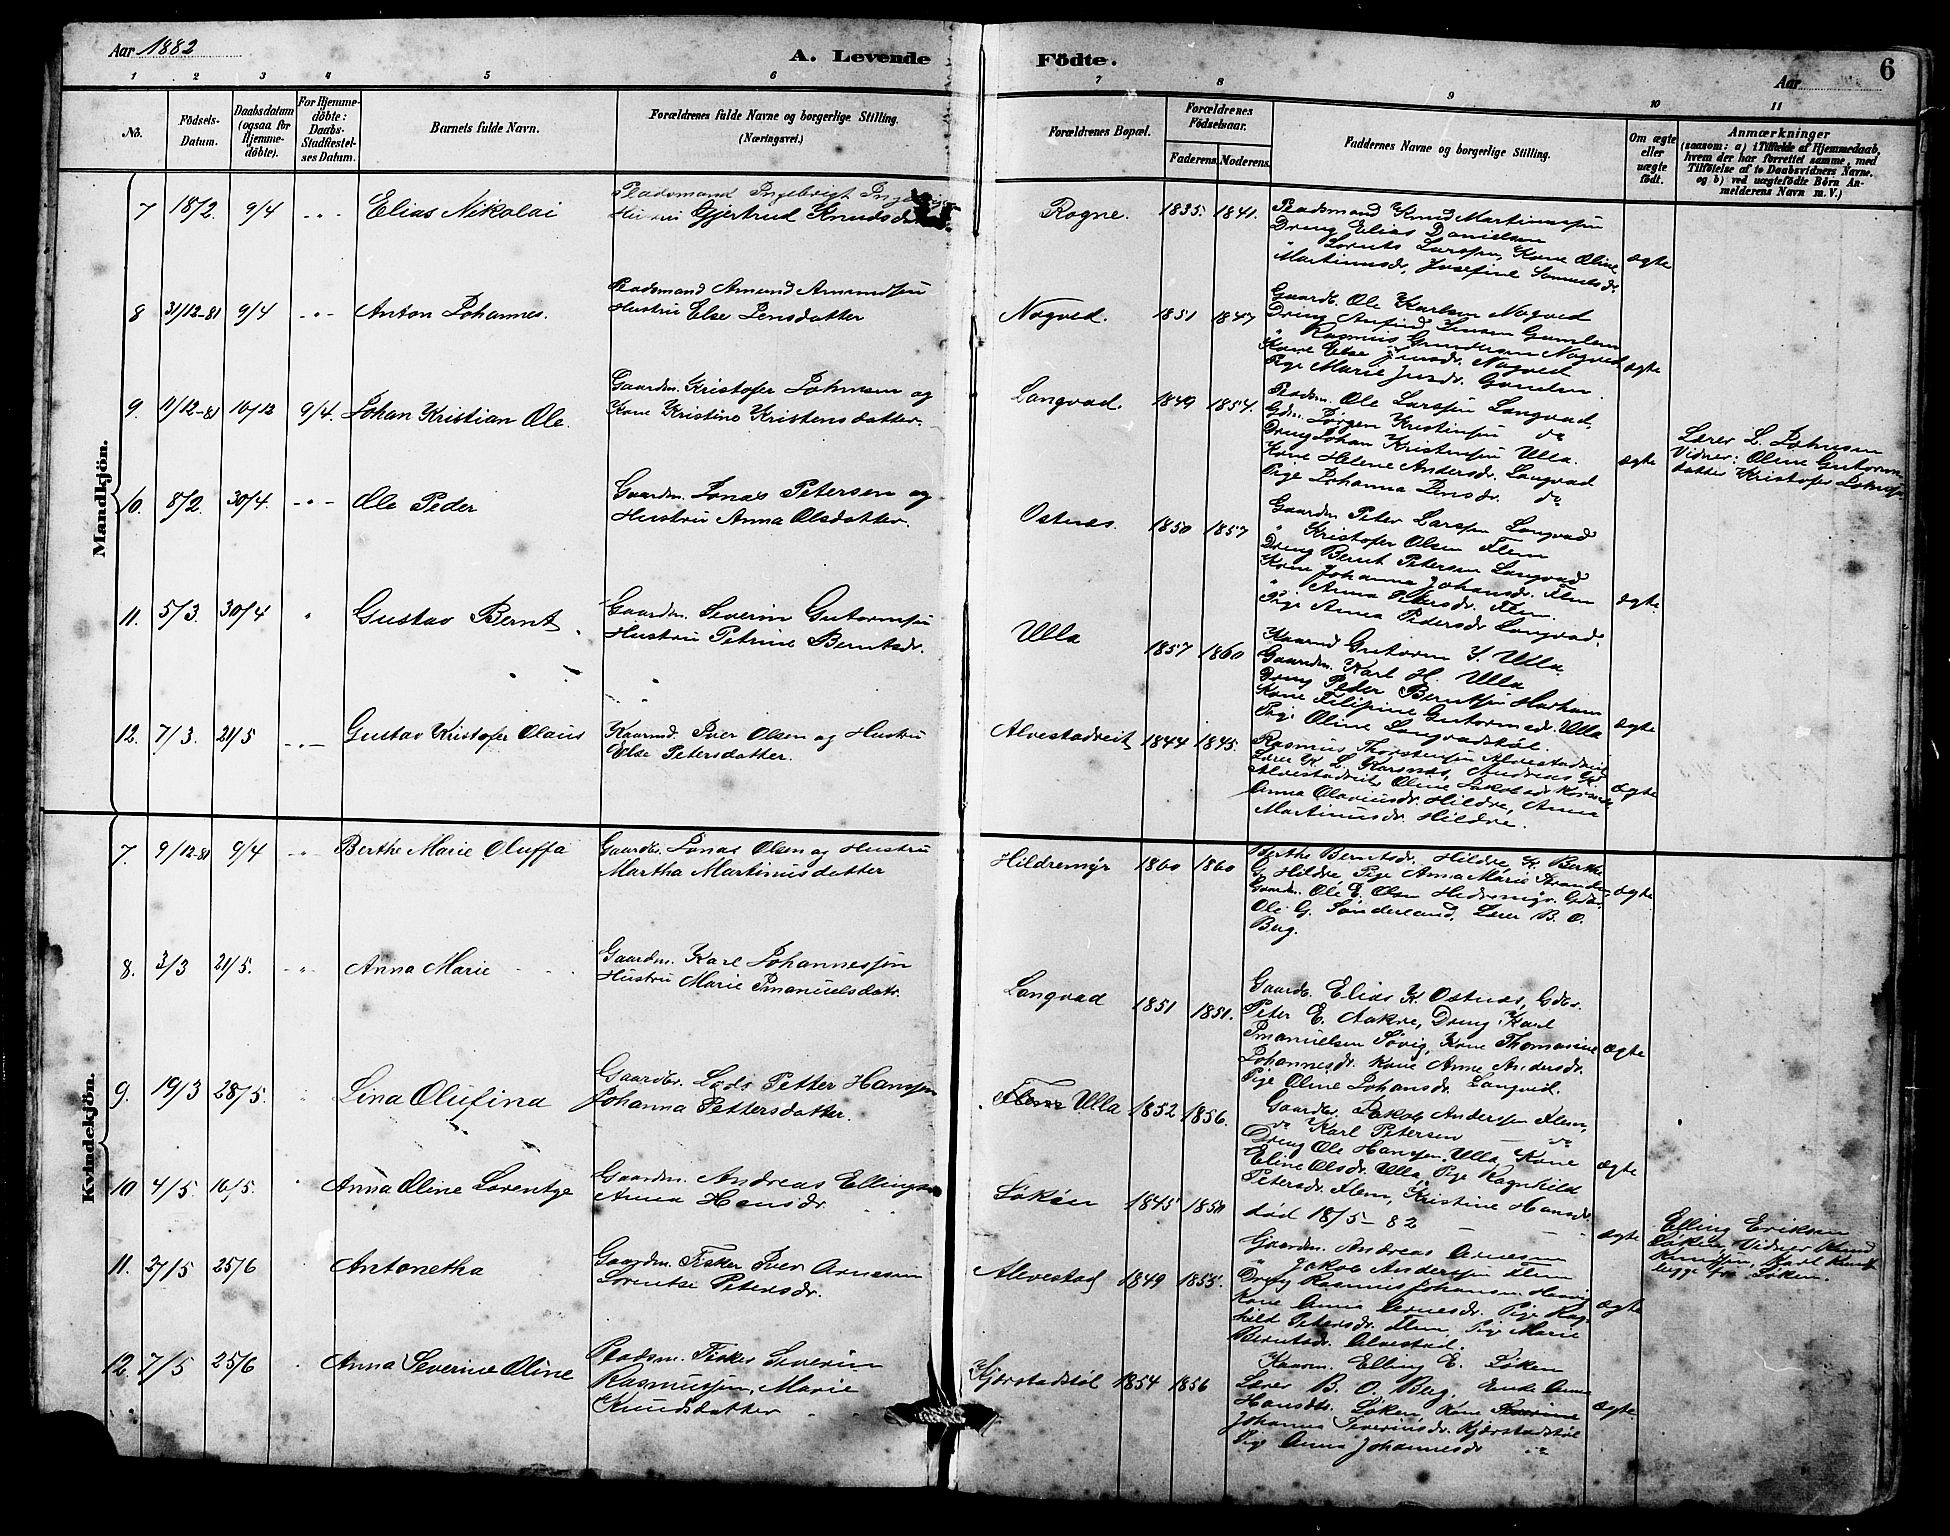 Aar 1882
A. Levende Födte.
Aar
6
1 2 3 4 5 6 7 8 9 10 11
No.
Födsels-Datum.
Daabsdatum (ogsaa for Hjemme-döbte).
For Hjemme-döbte: Daabs-Stadfæstel-ses Datum.
Barnets fulde Navn.
Forældrenes fulde Navne og borgerlige Stilling. (Næringsvei.)
Forældrenes Bopæl.
Forældrenes Födselsaar.
Faderens. Moderens.
Faddernes Navne og borgerlige Stilling.
Om ægte eller uægte födt.
Anmærkninger
(saasom: a) i Tilfælde af Hjemmedaab, hvem der har forrettet samme, med Tilföielse af to Daabsvidners Navne. og b) ved uægtefödte Börn An-melderens Navn m. V.)
Mandkjön.
7 18/2 9/4 " Elias Nikolai
Pladsmand Ingebrigt
Hustru Gjertrud Knudsd
Rogne. 1835. 1841.
Pladsmand Knud Martinussen
Dreng Elias Danielsen
" Lorents Larssen, Kone Oline
Martinusdr, Josefine Samuelsdr.
ægte
8 31/12-81 9/4 " Anton Johannes.
Pladsmand Amund Amundsen
Hustru Else Jensdatter
Nogved. 1851 1847
Gaardb. Ole Karlsen Nogved
Dreng Anfind Jensen Gamlem
" Rasmus Gundersen Nogved
Kone Else Jensdr. Nogved
Pige Marie Jensdr. Gamlem.
ægte
9. 11/12-81 10/12 9/4. Johan Kristian Ole.
Gaardm. Kristofer Johnsen og
Kone Kristine Kristensdatter.
Longvad. 1849 1854.
Pladsm. Ole Larssen Longvad.
Gdm. Jørgen Kristensen do
Dreng Johan Kristensen Ulla.
Kone Helene Andersdr. Longvad
Pige Johanna Jensdr. do
ægte
Lærer L. Johnsen
Vidner: Oline Gutorms
datter Kristofer Johnsen
10. 8/2. 30/4. " Ole Peder
Gaardm. Jonas Petersen og
Hustru Anna Olsdatter.
Ostnes. 1850 1857
Gaardm. Peter Larssen Longvad
" Kristofer Olsen Flem
Dreng Bernt Petersen Longvad
Kone Johanna Johansdr. Flem
" Anna Petersdr. Flem.
Pige Anna Pedersdr. Longvad.
ægte.
11. 5/3 30/4 " Gustav Bernt
Gaardm. Severin Gutormsen
Hustru Petrine Berntsdr.
Ulla 1857 1860
Kaarmd Gutorm S. Ulla.
Gaardm. Karl H. Ulla
Dreng Peder Berntsen Harham
Kone Filipine Gutormsdr. Ulla
Pige Oline Longvadstöl.
ægte
12. 7/3. 21/5 " Gustav Kristofer Olaus
Kaarmd. Iver Olsen og Hustru
Else Petersdatter.
Alvestadreit 1844 1845.
Rasmus Thorstensen Alvestadreit
Lærer K. L. Karsnes, Andreas
Alvestadreit, Oline Jakobsdr.
Anna Olavusdr. Hildre, Anna
Martinusdr. Hildre.
ægte
Kvindekjön.
7. 9/12-81 9/4 " Berthe Marie Oluffa
Gaardbr. Jonas Olsen og Hustru
Martha Martinusdatter
Hildremyr 1860 1860
Berthe Berntsdr. Hildre, K. Berthe
G. Hildre Pige Anna Marie
Gaardm. Ole E. Olsen Hildremyr. Gdbr.
Ole G. Sønderland, Lærer B. O.
Berg.
ægte
8. 3/3 21/5. " Anna Marie
Gaardm. Karl Johannessen
Hustru Marie Imanuelsdatr.
Longvad 1851 1851.
Gaardb. Elias K. Ostnes, Gdbr.
Peter E. Aakre, Dreng Karl
Imanuelsen Søvig, Kone Thomasine
Johannesdr. Kone Anne Andersdr.
Pige Oline Johansdr. Longvad.
ægte
9. 19/3 28/5. " Lina Olufina
Gaardbr. Lods Petter Hanssen
Johanna Pettersdatter.
Flem Ulla 1852 1856.
Gaardbr. Jakob Anderssen Flem,
do Karl Petersen — do
Dreng Ole Hanssen Ulla, Kone
Eline Olsdr. Ulla, Pige Ragnhild
Petersdr. Flem, Kristine Hansdr.
ægte
10 4/5 16/5. " Anna Oline Lorentze
Gaardm. Andreas Ellingsen
Anna Hansdr.
Løken 1845 1850
død 18/5-82
ægte
Elling Eriksen
Løken, Vidner Knud
Knudssen, Karl Knud
begge fra Løken.
11. 2/5 25/6 Antonetha
Gaardm. Fisker Iver Arnesen
Lorentse Petersdr.
Alvestad 1849 1855.
Gaardm. Andreas Arnesen
" Jakob Anderssen Flem
Dreng Rasmus Johansen
Kone Anna Arnesdr. Pige Rag-
hild Petersdr. Flem, Pige Marie
Berntsdr. Alvestad.
ægte
12. 7/5 25/6 Anna Severine Oline
Pladsm. Fisker Severin
Rasmussen, Marie
Knudsdatter
Kjærstadstöl 1854 1856
Kaarm. Elling E. Løken
Lærer B. O. Berg, Enke Anne
Hansdtr. Løken Kone
Johanna Severinsdr. Kjærstadstöl
Pige Anna Johannesdr "
ægte